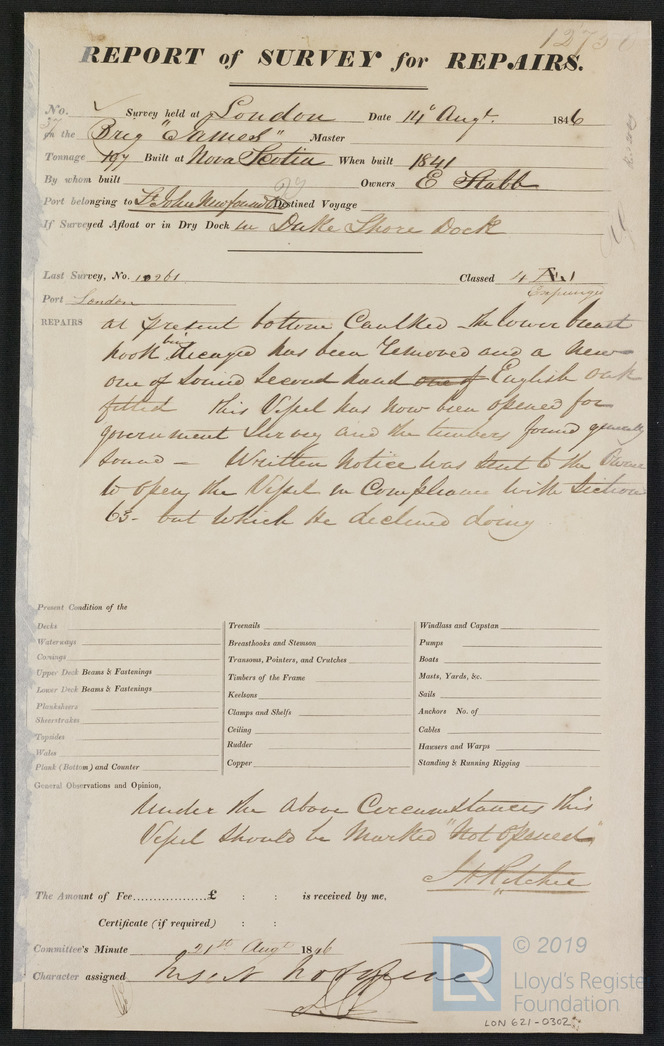 REPORT of SURVEY for REPAIRS.
No. Survey held at London Date 14th Augt. 1846
on the Brig "James" Master
Tonnage 197 Built at Nova Scotia When built 1841
By whom built Owners E Stabb
Port belonging to St John Newfoundland Destined Voyage
If Surveyed Afloat or in Dry Dock in Duke Shore Dock
Last Survey, No. 10261 Classed 4 A 1
Expunged
Port London
REPAIRS at present bottom Caulked - the lower breast
hook being decayed has been removed and a new
one of sound second hand one of English oak
fitted this Vessel has now been opened for
government Survey and the timbers found generally
sound - Written Notice was sent to the Owner
to open the Vessel in Compliance with Section
63- but which he declined doing
Present Condition of the
Decks
Waterways
Comings
Upper Deck Beams & Fastenings
Lower Deck Beams & Fastenings
Plansheers
Sheerstrakes
Topsides
Wales
Plank (Bottom) and Counter
Treenails
Breasthooks and Stemson
Transoms, Pointers, and Crutches
Timbers of the Frame
Keelsons
Clamps and Shelfs
Ceiling
Rudder
Copper
Windlass and Capstan
Pumps
Boats
Masts, Yards, &c.
Sails
Anchors No. of
Cables
Hawsers and Warps
Standing & Running Rigging
General Observations and Opinion,
Under the above Circumstances this
Vessel should be Marked "Not Opened"
J H Ritchie
The Amount of Fee.................£ : : is received by me,
Certificate (if required) : :
Committee's Minute 21st Augt 1846
Character assigned Insert Not opened
© 2019
LR
Lloyd's Register
Foundation
LON 621-0302